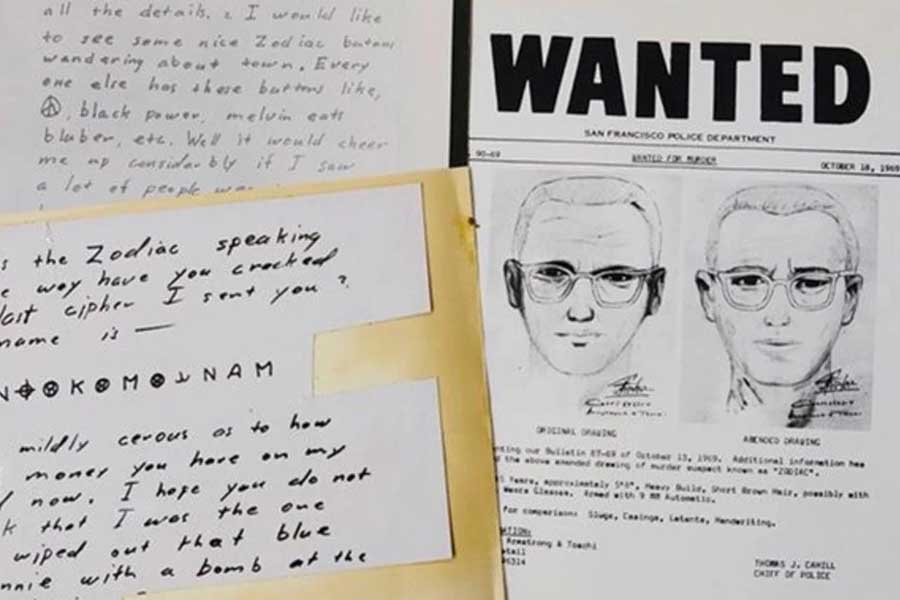 all the details. & I would like
to see some nice Zodiac butons
wandering about town. Every
one else has these buttons like,
☮, black power, melvin eats
bluber, etc. Well it would cheer
me up considerbly if I saw
a lot of people
s the Zodiac speaking
way have you cracked
last cipher I sent you?
name is —
N⌖⊗K⊗M⊗⅃NAM
mildly cerous as to how
money you have on my
now. I hope you do not
k that I was the one
wiped out that blue
nnie with a bomb at the
WANTED
SAN FRANCISCO POLICE DEPARTMENT
90-69 WANTED FOR MURDER OCTOBER 18, 1969
ORIGINAL DRAWING AMENDED DRAWING
nting our Bulletin 87-69 of October 13, 1969. Additional information has
the above amended drawing of murder suspect known as "ZODIAC".
5 Years, approximately 5'8", Heavy Build, Short Brown Hair, possibly with
Wears Glasses. Armed with 9 MM Automatic.
for comparison: Slugs, Casings, Latents, Handwriting.
ATION:
Armstrong & Toschi
etail
THOMAS J. CAHILL
CHIEF OF POLICE